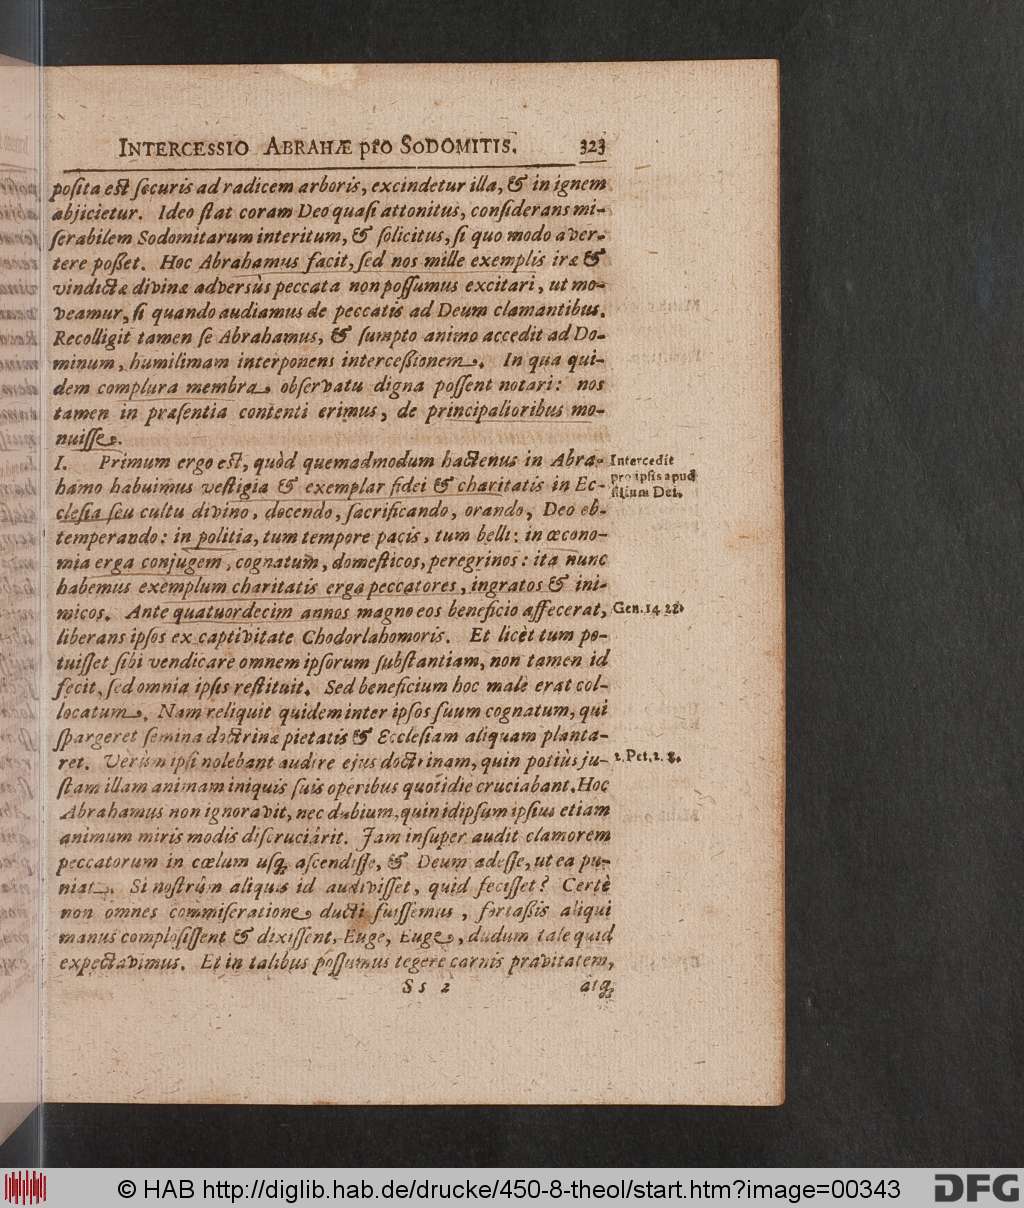 INTERCESSIO ABRAHÆ pro SODOMITIS. 323
poſita eſt ſecuris ad radicem arboris, excindetur illa, & in ignem
abjicietur. Ideo ſtat coram Deo quaſi attonitus, conſiderans mi-
ſerabilem Sodomitarum interitum, & ſolicitus, ſi quo modo aver-
tere poßet. Hoc Abrahamus facit, ſed nos mille exemplis iræ &
vindictæ divinæ adverſùs peccata non poſſumus excitari, ut mo-
veamur, ſi quando audiamus de peccatis ad Deum clamantibus.
Recolligit tamen ſe Abrahamus, & ſumpto animo accedit ad Do-
minum, humilimam interponens interceßionem. In qua qui-
dem complura membra obſervatu digna poſſent notari: nos
tamen in præſentia contenti erimus, de principalioribus mo-
nuiſſe.
I. Primum ergo eſt, quòd quemadmodum hactenus in Abra-
hamo habuimus veſtigia & exemplar fidei & charitatis in Ec-
cleſia ſeu cultu divino, docendo, ſacrificando, orando, Deo ob-
temperando: in politia, tum tempore pacis, tum belli: in œcono-
mia erga conjugem, cognatum, domeſticos, peregrinos: ita nunc
habemus exemplum charitatis erga peccatores, ingratos & ini-
micos. Ante quatuordecim annos magno eos beneficio affecerat,
liberans ipſos ex captivitate Chodorlahomoris. Et licèt tum po-
tuiſſet ſibi vendicare omnem ipſorum ſubſtantiam, non tamen id
fecit, ſed omnia ipſis reſtituit. Sed beneficium hoc malè erat col-
locatum. Nam reliquit quidem inter ipſos ſuum cognatum, qui
ſpargeret ſemina doctrinæ pietatis & Eccleſiam aliquam planta-
ret. Verùm ipſi nolebant audire ejus doctrinam, quin potiùs ju-
ſtam illam animam iniquis ſuis operibus quotidie cruciabant. Hoc
Abrahamus non ignoravit, nec dubium, quin id ipſum ipſius etiam
animum miris modis diſcruciârit. Jam inſuper audit clamorem
peccatorum in cœlum uſq; aſcendiſſe, & Deum adeſſe, ut ea pu-
niat. Si noſtrûm aliquis id audiviſſet, quid feciſſet? Certè
non omnes commiſeratione ducti fuiſſemus, fortaßis aliqui
manus comploſiſſent & dixiſſent, Euge, Euge, dudum tale quid
expectavimus. Et in talibus poſſumus tegere carnis pravitatem,
Ss 2 atq;
Intercedit
pro ipſis apud
filium Dei.
Gen. 14.22.
2. Pet. 2. 8.
© HAB http://diglib.hab.de/drucke/450-8-theol/start.htm?image=00343
DFG